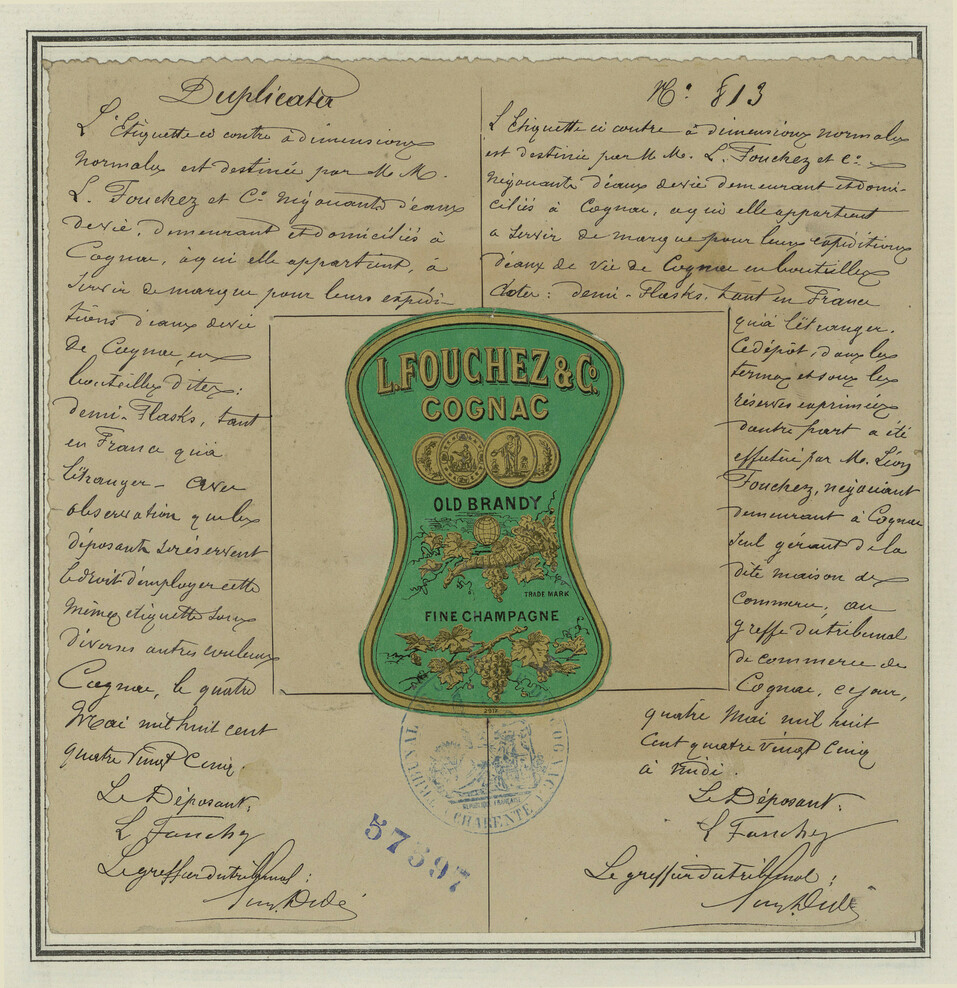 Duplicata
L'Etiquette ci contre à dimensions
normales est destinée par M M.
L. Fouchez et Cie Négociants d'eaux
de vie, demeurant et domiciliés à
Cognac, à qui elle appartient, à
servir de marque pour leurs expédi-
tions d'eaux de vie
de Cognac en
bouteilles dites:
demi-Flasks, tant
en France qu'à
l'étranger - avec
observation que les
déposants se réservent
le droit d'employer cette
même etiquette sous
diverses autres couleurs
Cognac, le quatre
Mai mil huit cent
quatre vingt cinq.
Le Déposant:
L Fouchez
Le greffier du tribunal:
N° 813
L'Etiquette ci contre à dimensions normales
est destinée par M M. L. Fouchez et Cie
Négociants d'eaux de vie demeurant et domi-
ciliés à Cognac, a qui elle appartient
a servir de marque pour leurs expéditions
d'eaux de vie de Cognac en bouteilles
dites: demi-Flasks, tant en France
qu'à l'étranger.
Ce dépôt, dans les
termes et sous les
réserves exprimées
d'autre part a été
effectué par M. Léon
Fouchez, négociant
demeurant à Cognac
seul gérant de la
dite maison de
Commerce, au
greffe du tribunal
de commerce de
Cognac, ce jour,
quatre Mai mil huit
cent quatre vingt cinq
à midi.
Le Déposant:
L Fouchez
Le greffier du tribunal:
L. FOUCHEZ & Co.
COGNAC
OLD BRANDY
TRADE MARK
FINE CHAMPAGNE
TRIBUNAL COGNAC CHARENTE
REPUBLIQUE FRANÇAISE
57597